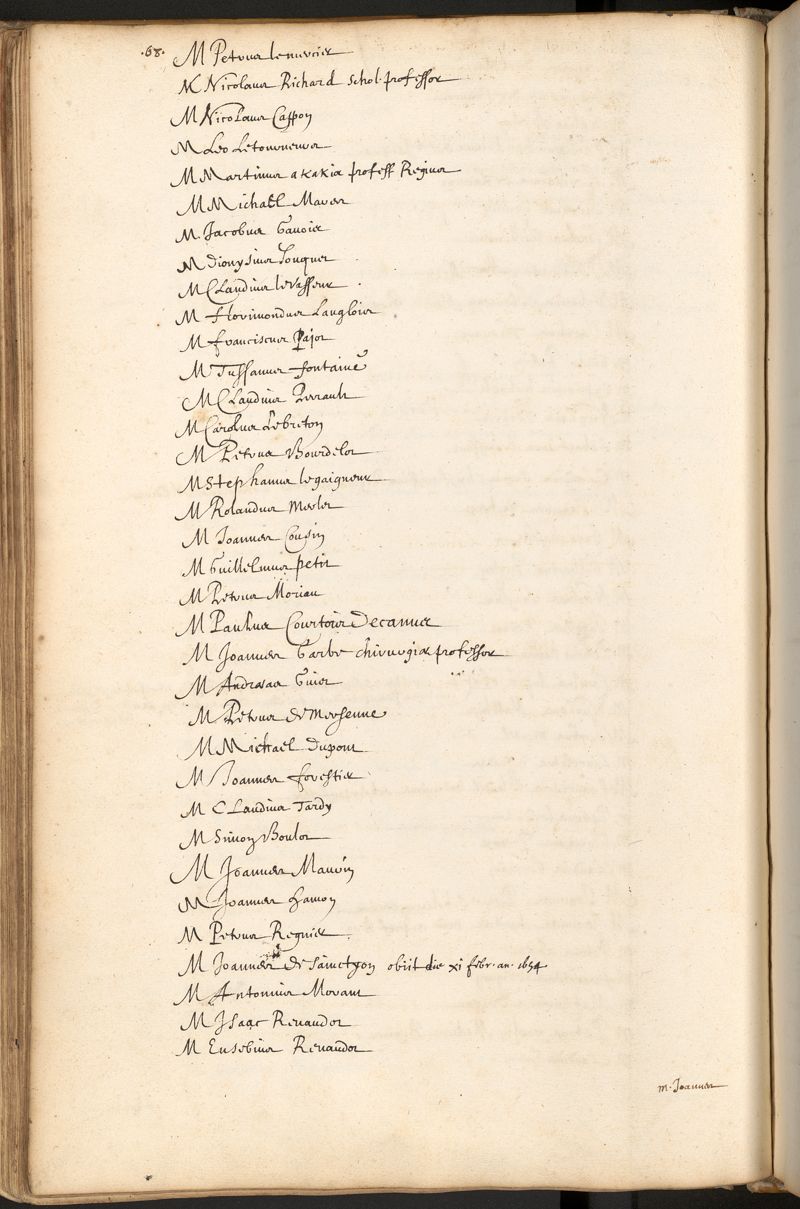 .68. M Petrus Lemercier
M Nicolaus Richard schol. professor
M Nicolaus Cappon
M Leo Letourneurs
M Martinus akakia profess Regius
M Michaël Mares
M. Jacobus Gavois
M Dionysius Jouquet
M Claudius leVasseur
M Florimondus Langlois
M franciscus Pajot
M Tussanus fontaine
M Claudius Perrault
M Carolus Lebreton
M Petrus Bourdelot
M Stephanus legaigneux
M Rolandus Merlet
M Joannes Cousin
M Guillelmus petit
M Petrus Moriau
M Paulus Courtois Decanus
M Joannes Garbe chirurgiæ professor
M Andræas Guiet
M Petrus de Mersenne
M Michaël Dupont
M Joannes forestier
M Claudius Tardy
M Simon Boulot
M Joannes Mauvin
M Joannes hamon
M Petrus Regnier
M Joannes de Sainctyon obiit die xi febr. an. 1654
M Antonius Morant
M Isaac Renaudot
M Eusebius Renaudot
m. Joannes